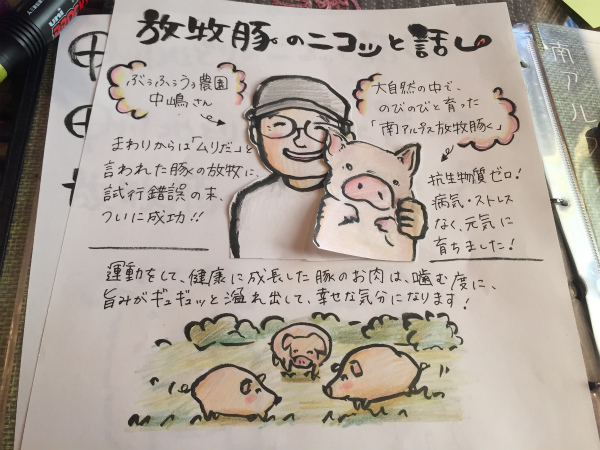 放牧豚のニコッと話し
ぶぅふぅうぅ農園
中嶋さん
大自然の中で、
のびのびと育った
「南アルプス放牧豚く」
まわりからは「ムリだ」と
言われた豚の放牧に、
試行錯誤の末、
ついに成功!!
抗生物質ゼロ!
病気・ストレス
なく、元気に
育ちました!
運動をして、健康に成長した豚のお肉は、噛む度に、
旨みがギュギュッと溢れ出して、幸せな気分になります!
南アル